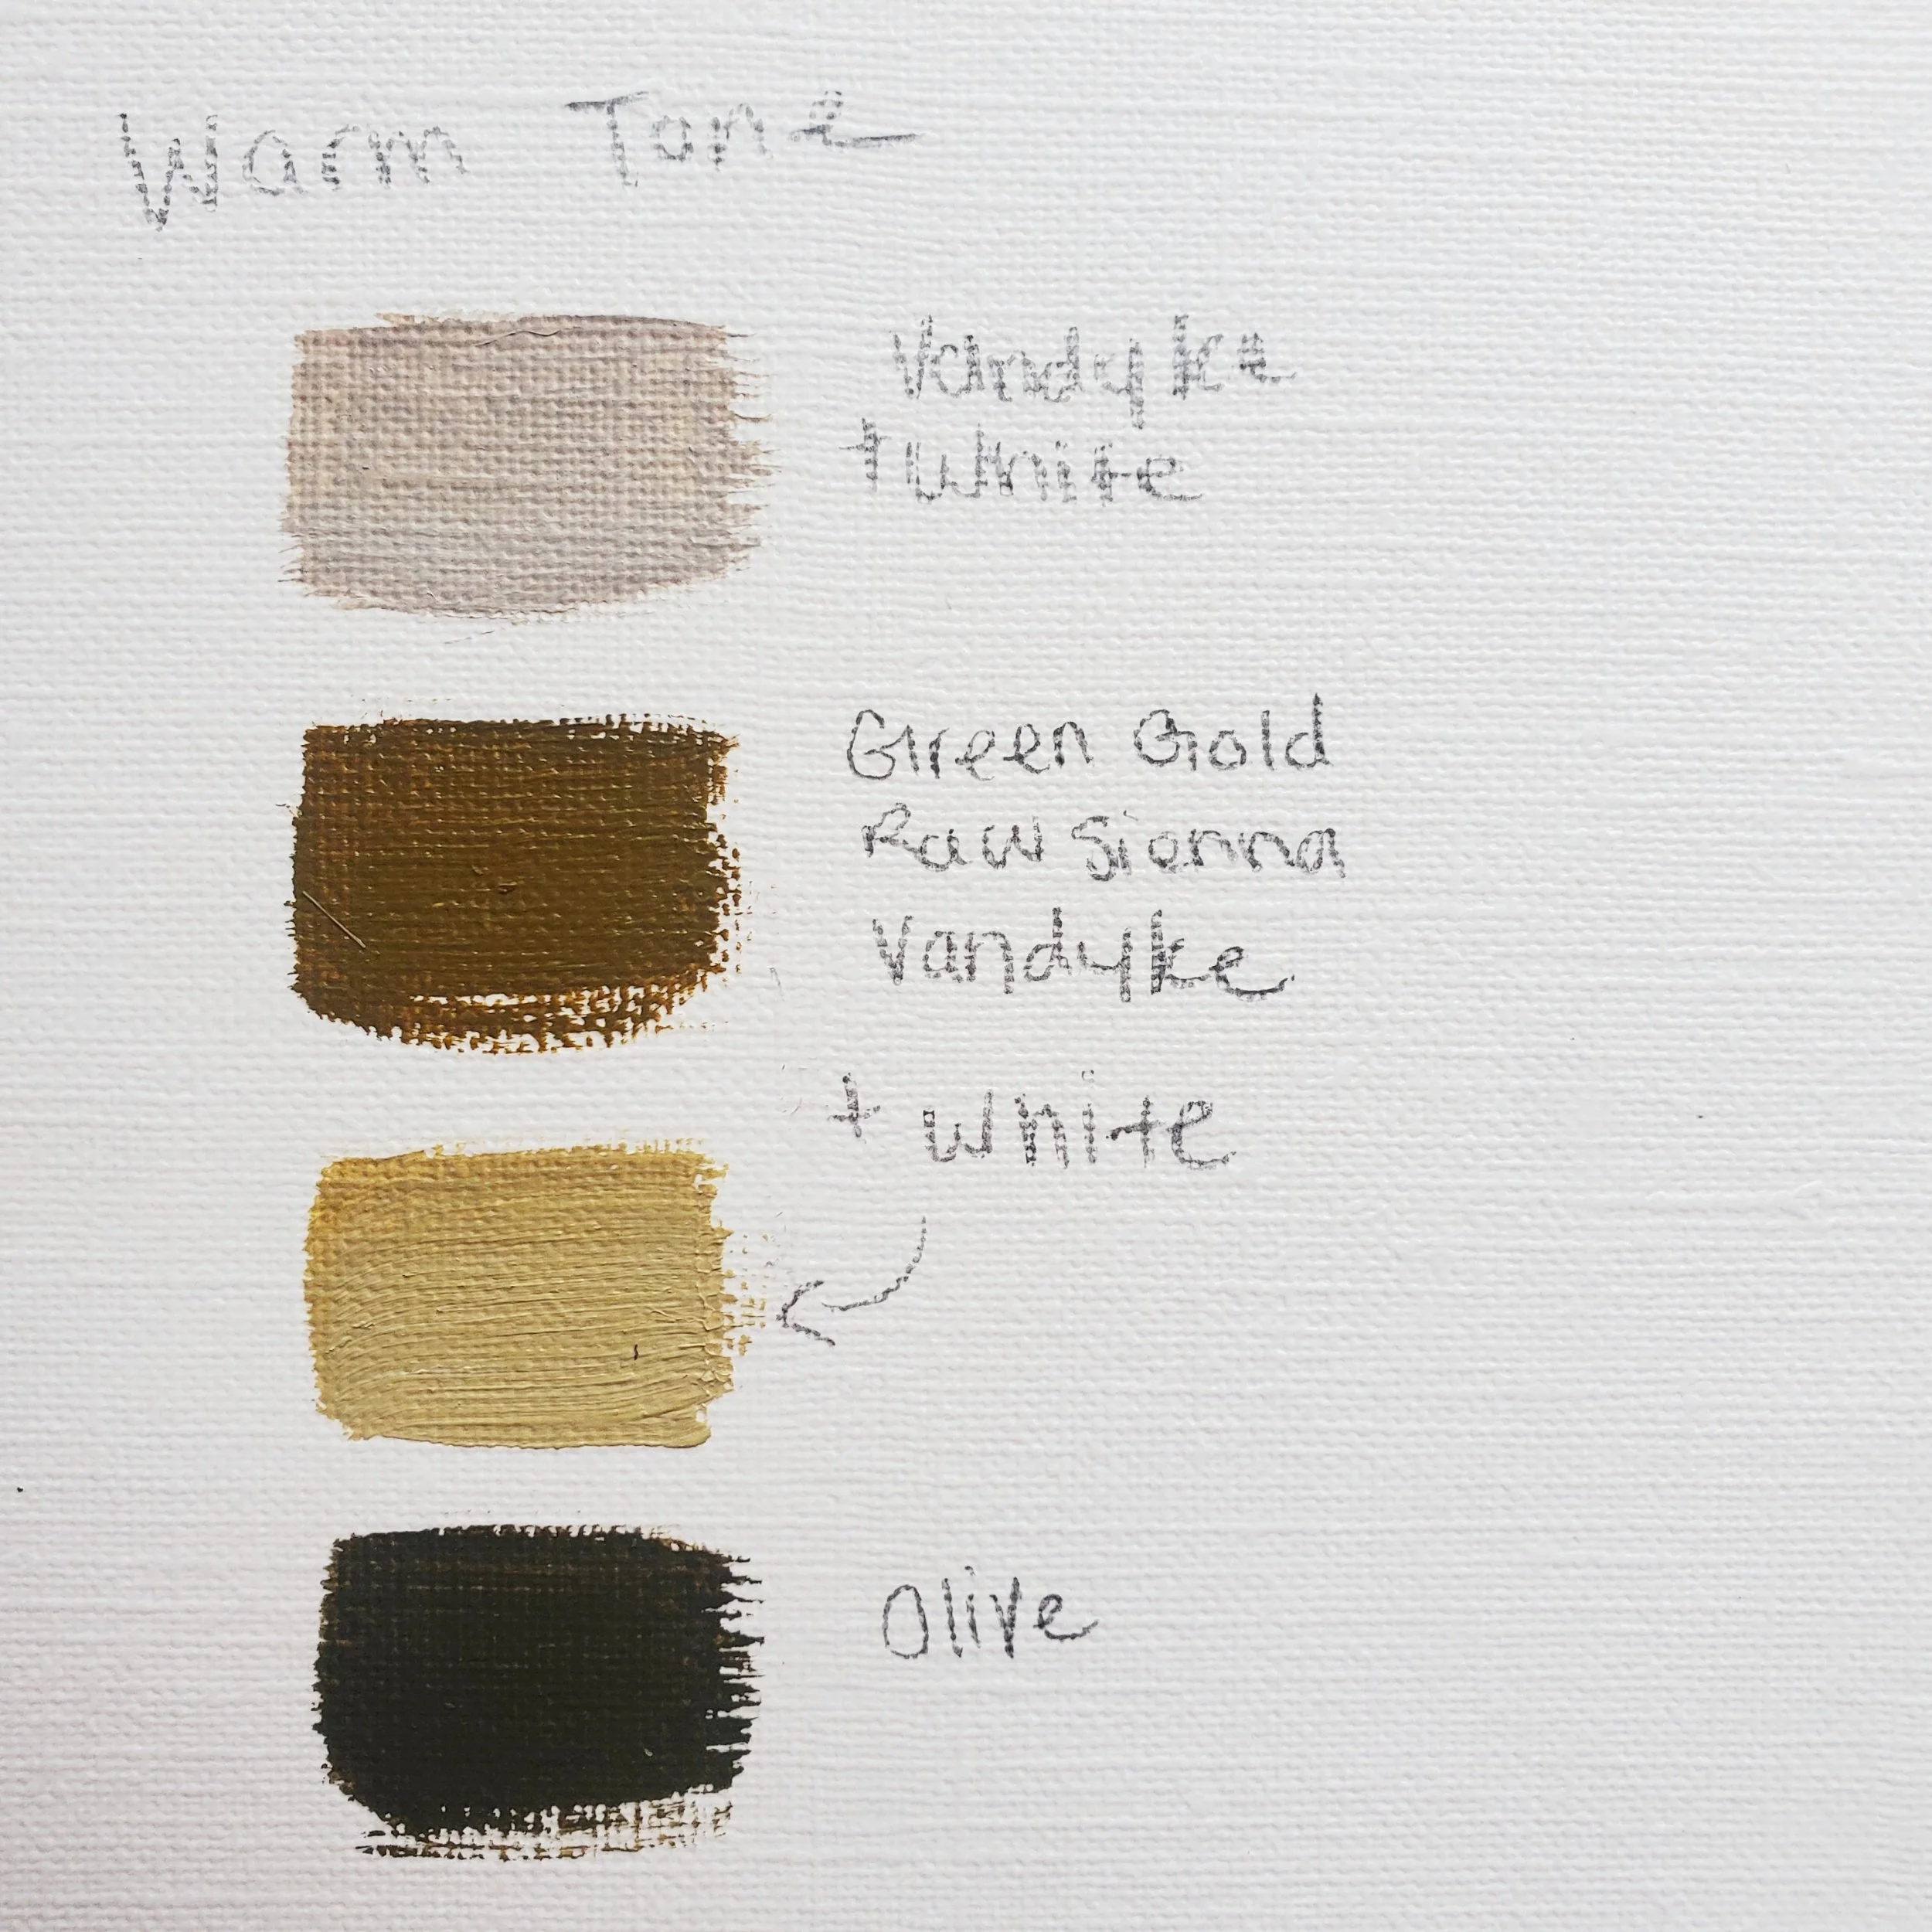 Warm Tone
Vandyke
+ White
Green Gold
Raw Sienna
Vandyke
+ white
Olive